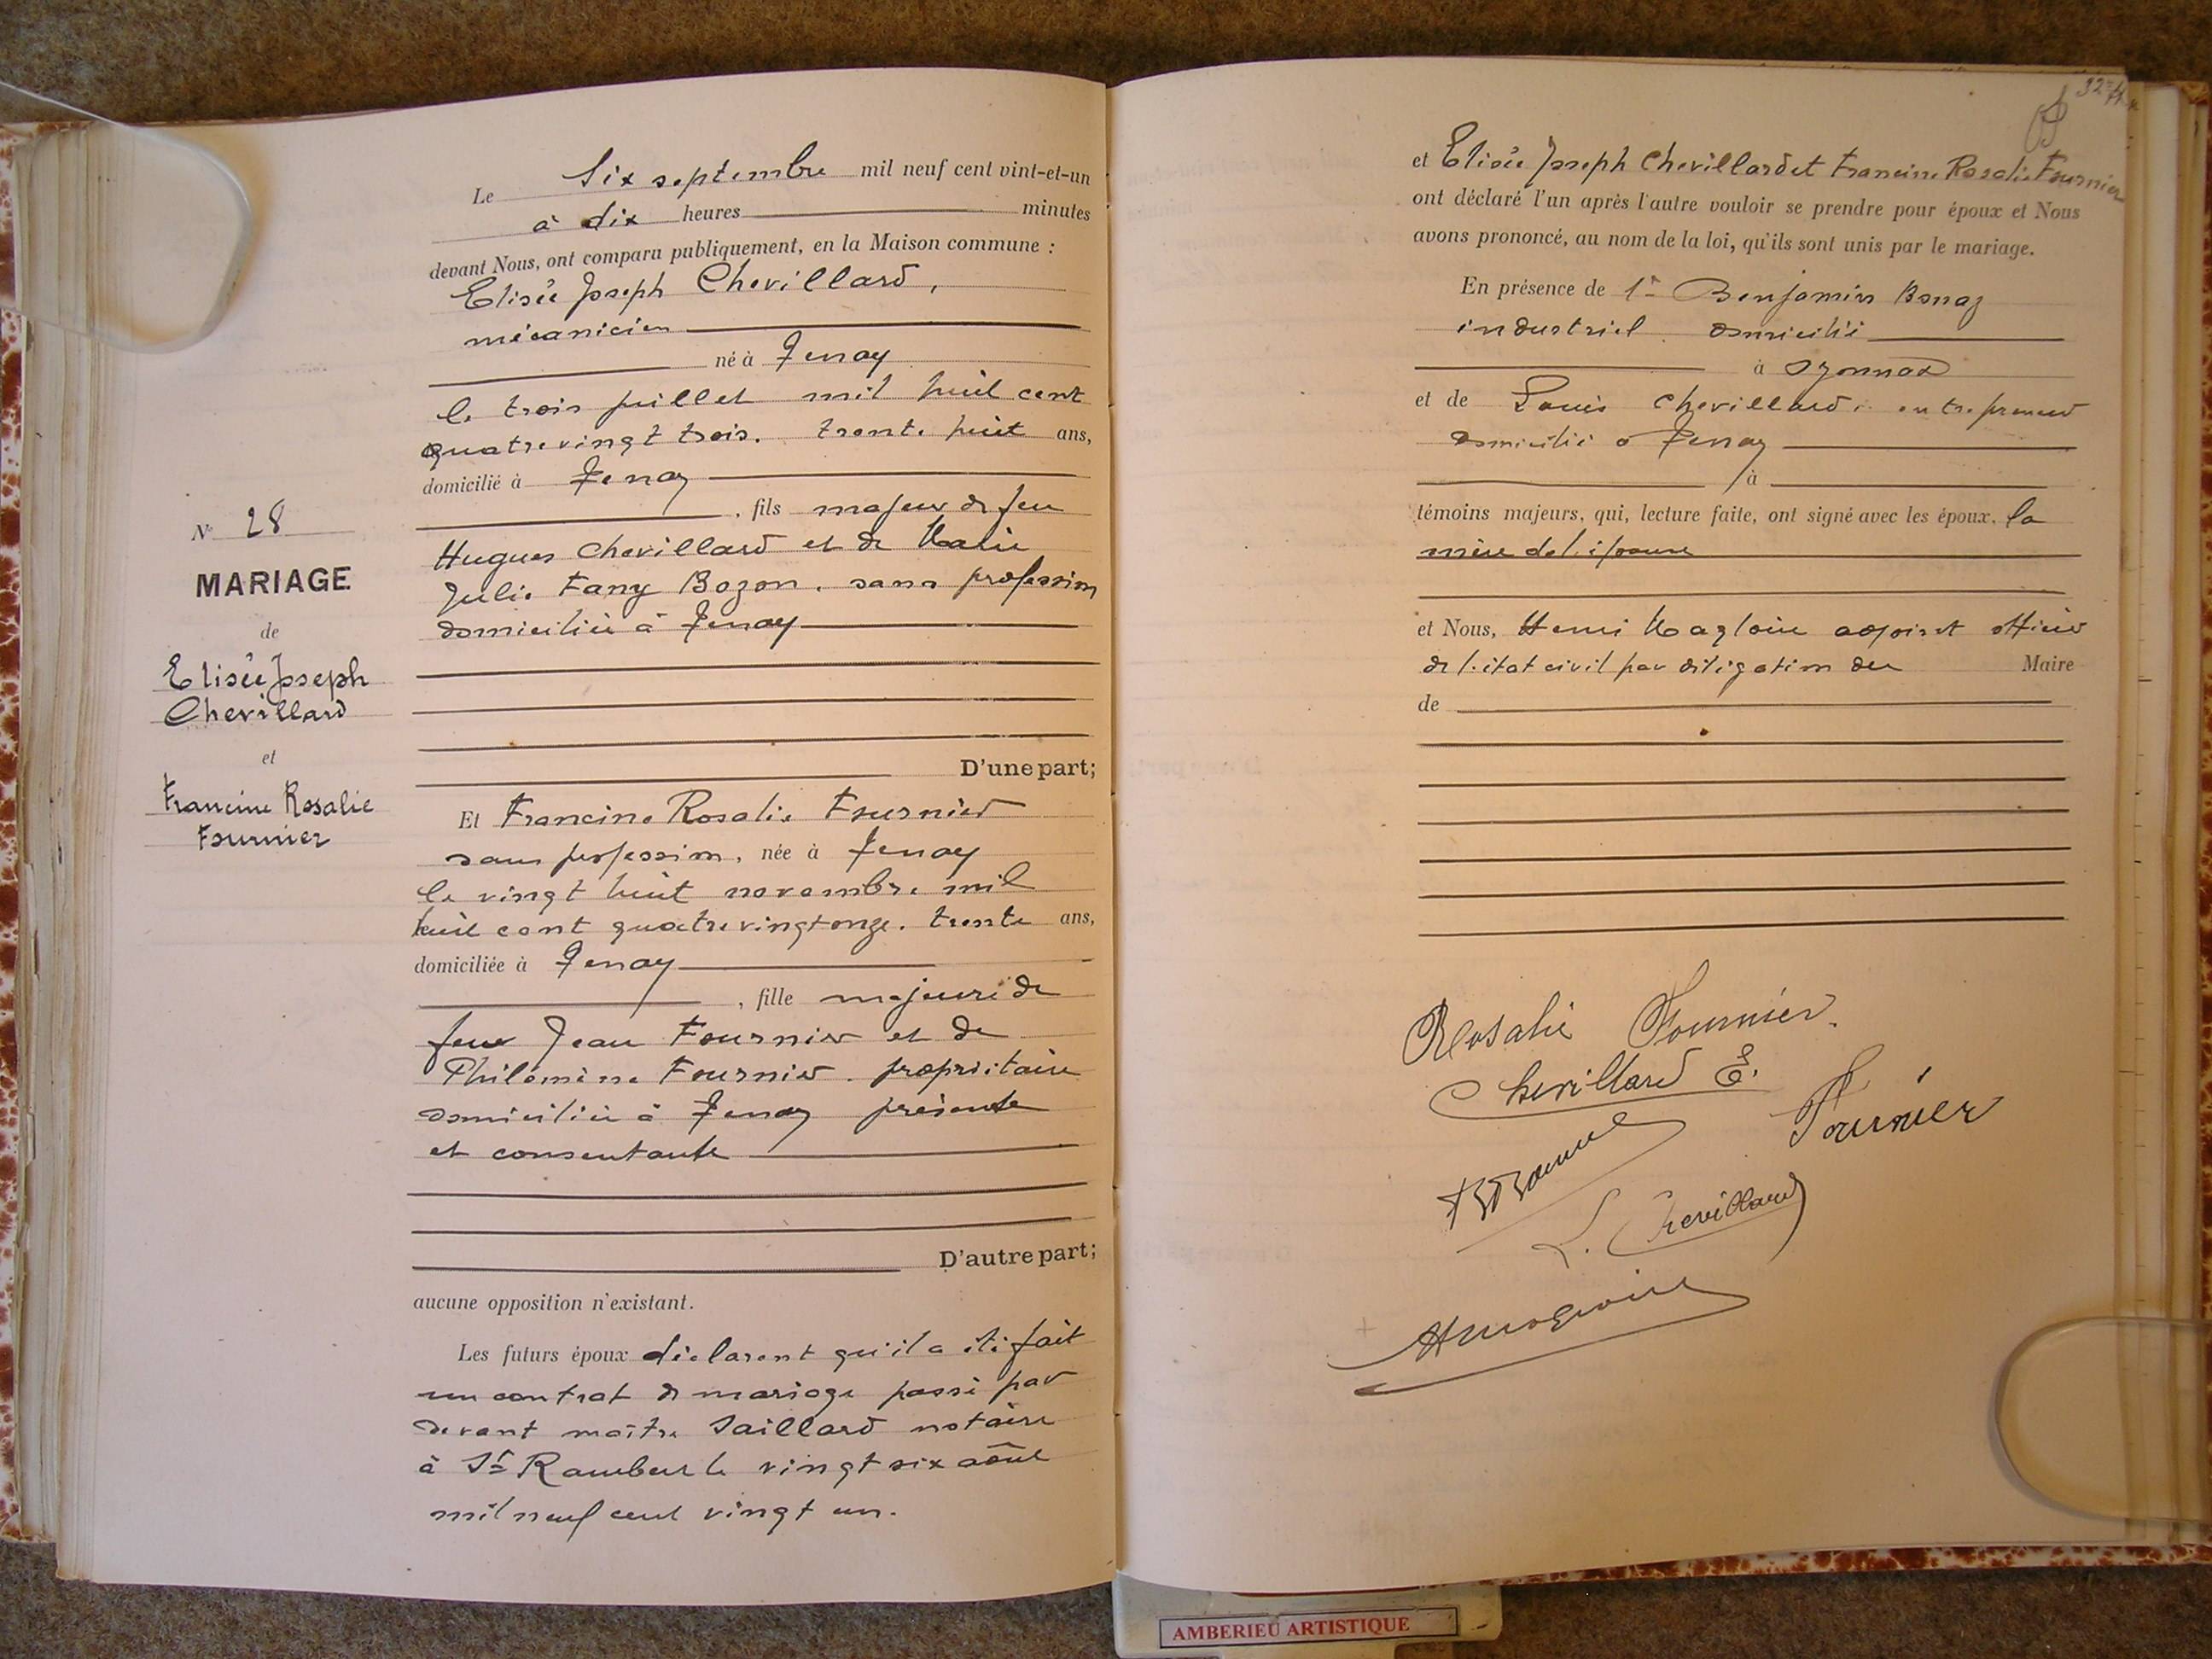 Le Six septembre mil neuf cent vint-et-un
à dix heures minutes
devant Nous, ont comparu publiquement, en la Maison commune :
Elisée Joseph Chevillard,
mécanicien
né à Tenay
le trois juillet mil huit cent
quatre vingt trois. trente huit ans,
domicilié à Tenay
, fils majeur de feu
Hugues Chevillard et de Marie
Julie Fany Bozon. sans profession
domiciliée à Tenay
N° 28
MARIAGE
de
Elisée Joseph
Chevillard
et
Francine Rosalie
Fournier
D'une part;
Et Francine Rosalie Fournier
sans profession, née à Tenay
le vingt huit novembre mil
huit cent quatre vingt onze. trente ans,
domiciliée à Tenay
, fille majeure de
feu Jean Fournier et de
Philomène Fournier. propriétaire
domiciliée à Tenay présente
et consentante
D'autre part;
aucune opposition n'existant.
Les futurs époux déclarent qu'il a été fait
un contrat de mariage passé par
devant maître Saillard notaire
à St Rambert le vingt six août
mil neuf cent vingt un.
et Elisée Joseph Chevillard et Francine Rosalie Fournier
ont déclaré l'un après l'autre vouloir se prendre pour époux et Nous
avons prononcé, au nom de la loi, qu'ils sont unis par le mariage.
En présence de 1° Benjamin Bonaz
industriel domicilié
à Oyonnax
et de Louis Chevillard, entrepreneur
domicilié à Tenay
à
témoins majeurs, qui, lecture faite, ont signé avec les époux, la
mère de l'épouse
et Nous, Henri Magloire adjoint officier
de l'état civil par délégation du Maire
de
Rosalie Fournier
Chevillard E.
Fournier
L. Chevillard
HMagloire
AMBERIEU ARTISTIQUE